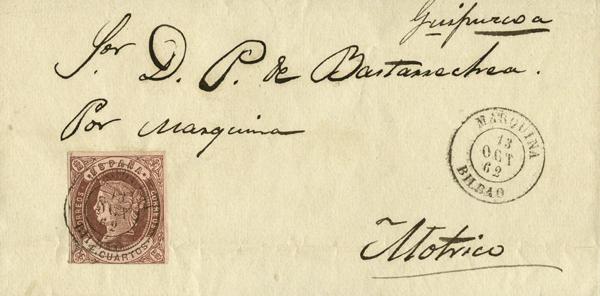 Guipuzcoa
Sor. D. P. de Bastarrechea.
Por Marquina
MARQUINA
13
OCT
62
BILBAO
ESPAÑA
CORREOS
CORREOS
CUARTOS
Motrico